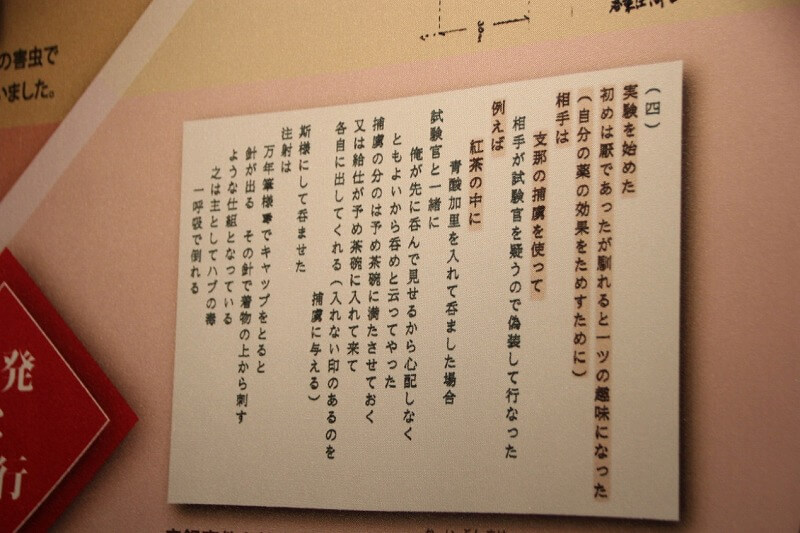 の害虫で
いました。
(四)
実験を始めた
初めは厭であったが馴れると一ツの趣味になった
(自分の薬の効果をためすために)
相手は
支那の捕虜を使って
相手が試験官を疑うので偽装して行なった
例えば
紅茶の中に
青酸加里を入れて呑ました場合
試験官と一緒に
俺が先に呑んで見せるから心配しなく
ともよいから呑めと云ってやった
捕虜の分のは予め茶碗に満たさせておく
又は給仕が予め茶碗に入れて来て
各自に出してくれる(入れない印のあるのを
捕虜に与える)
斯様にして呑ませた
注射は
万年筆様
でキャップをとると
針が出る その針で着物の上から刺す
ような仕組となっている
之は主としてハブの毒
一呼吸で倒れる
発
行